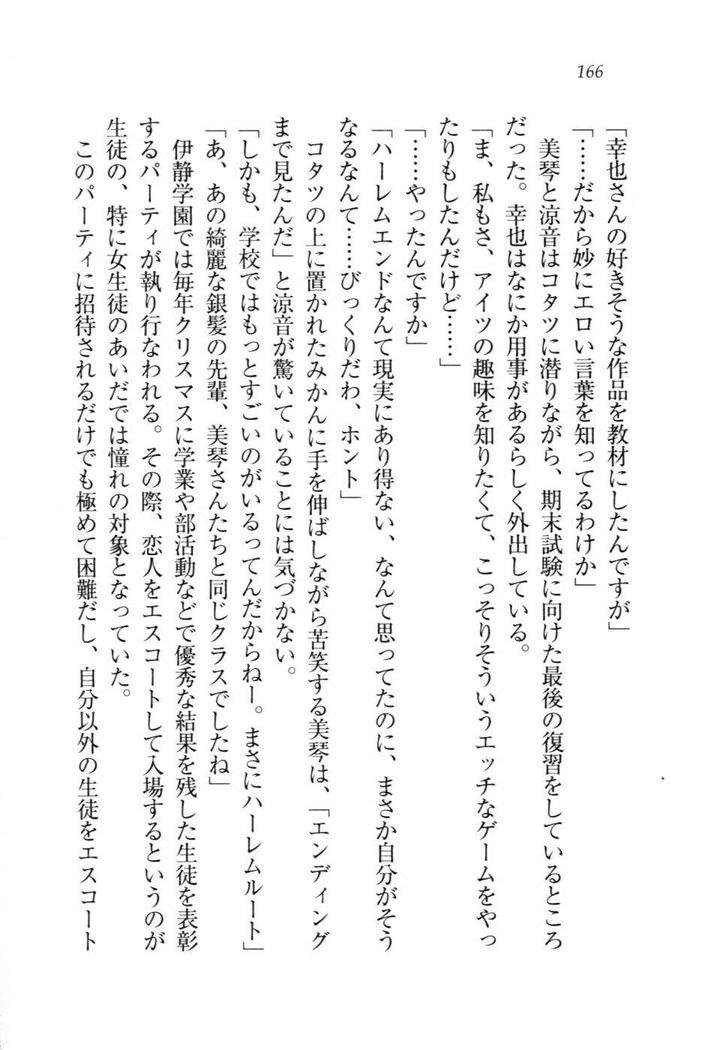 166
「幸也さんの好きそうな作品を教材にしたんですが」
「……だから妙にエロい言葉を知ってるわけか」
美琴と涼音はコタツに潜りながら、期末試験に向けた最後の復習をしているところ
だった。幸也はなにか用事があるらしく外出している。
「ま、私もさ、アイツの趣味を知りたくて、こっそりそういうエッチなゲームをやっ
たりもしたんだけど……」
「……やったんですか」
「ハーレムエンドなんて現実にあり得ない、なんて思ってたのに、まさか自分がそう
なるなんて……びっくりだわ、ホント」
コタツの上に置かれたみかんに手を伸ばしながら苦笑する美琴は、「エンディング
まで見たんだ」と涼音が驚いていることには気づかない。
「しかも、学校ではもっとすごいのがいるってんだからねー。まさにハーレムルート」
「あ、あの綺麗な銀髪の先輩、美琴さんたちと同じクラスでしたね」
伊静学園では毎年クリスマスに学業や部活動などで優秀な結果を残した生徒を表彰
するパーティが執り行なわれる。その際、恋人をエスコートして入場するというのが
生徒の、特に女生徒のあいだでは憧れの対象となっていた。
このパーティに招待されるだけでも極めて困難だし、自分以外の生徒をエスコート